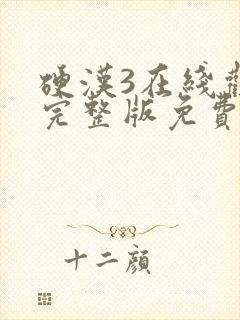 硬漢3在綫觀
完整版免費
十二顔